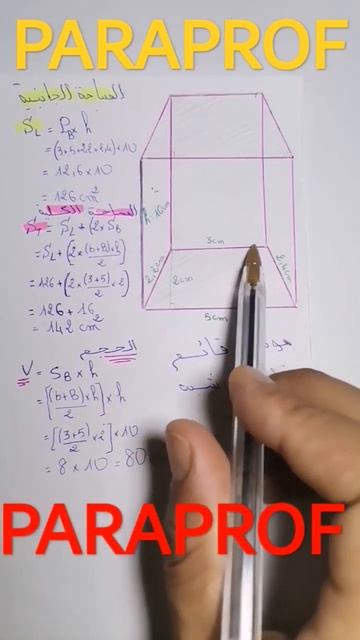 PARAPROF
المساحة الجانبية
S_L = P_B × h
= (3+5+2,2+2,4) × 10
= 12,6 × 10
= 126 cm²
المساحة الكلية
S_T = S_L + (2 × S_B)
= S_L + (2 × (b+B) × h / 2)
= 126 + (2 × (3+5) / 2 × 2)
= 126 + 16
= 142 cm²
الحجم
V = S_B × h
= [(b+B) × h / 2] × h
= [(3+5) / 2 × 2] × 10
= 8 × 10 = 80
h = 10cm
3cm
2,2cm
2cm
2,4cm
5cm
قائم
PARAPROF